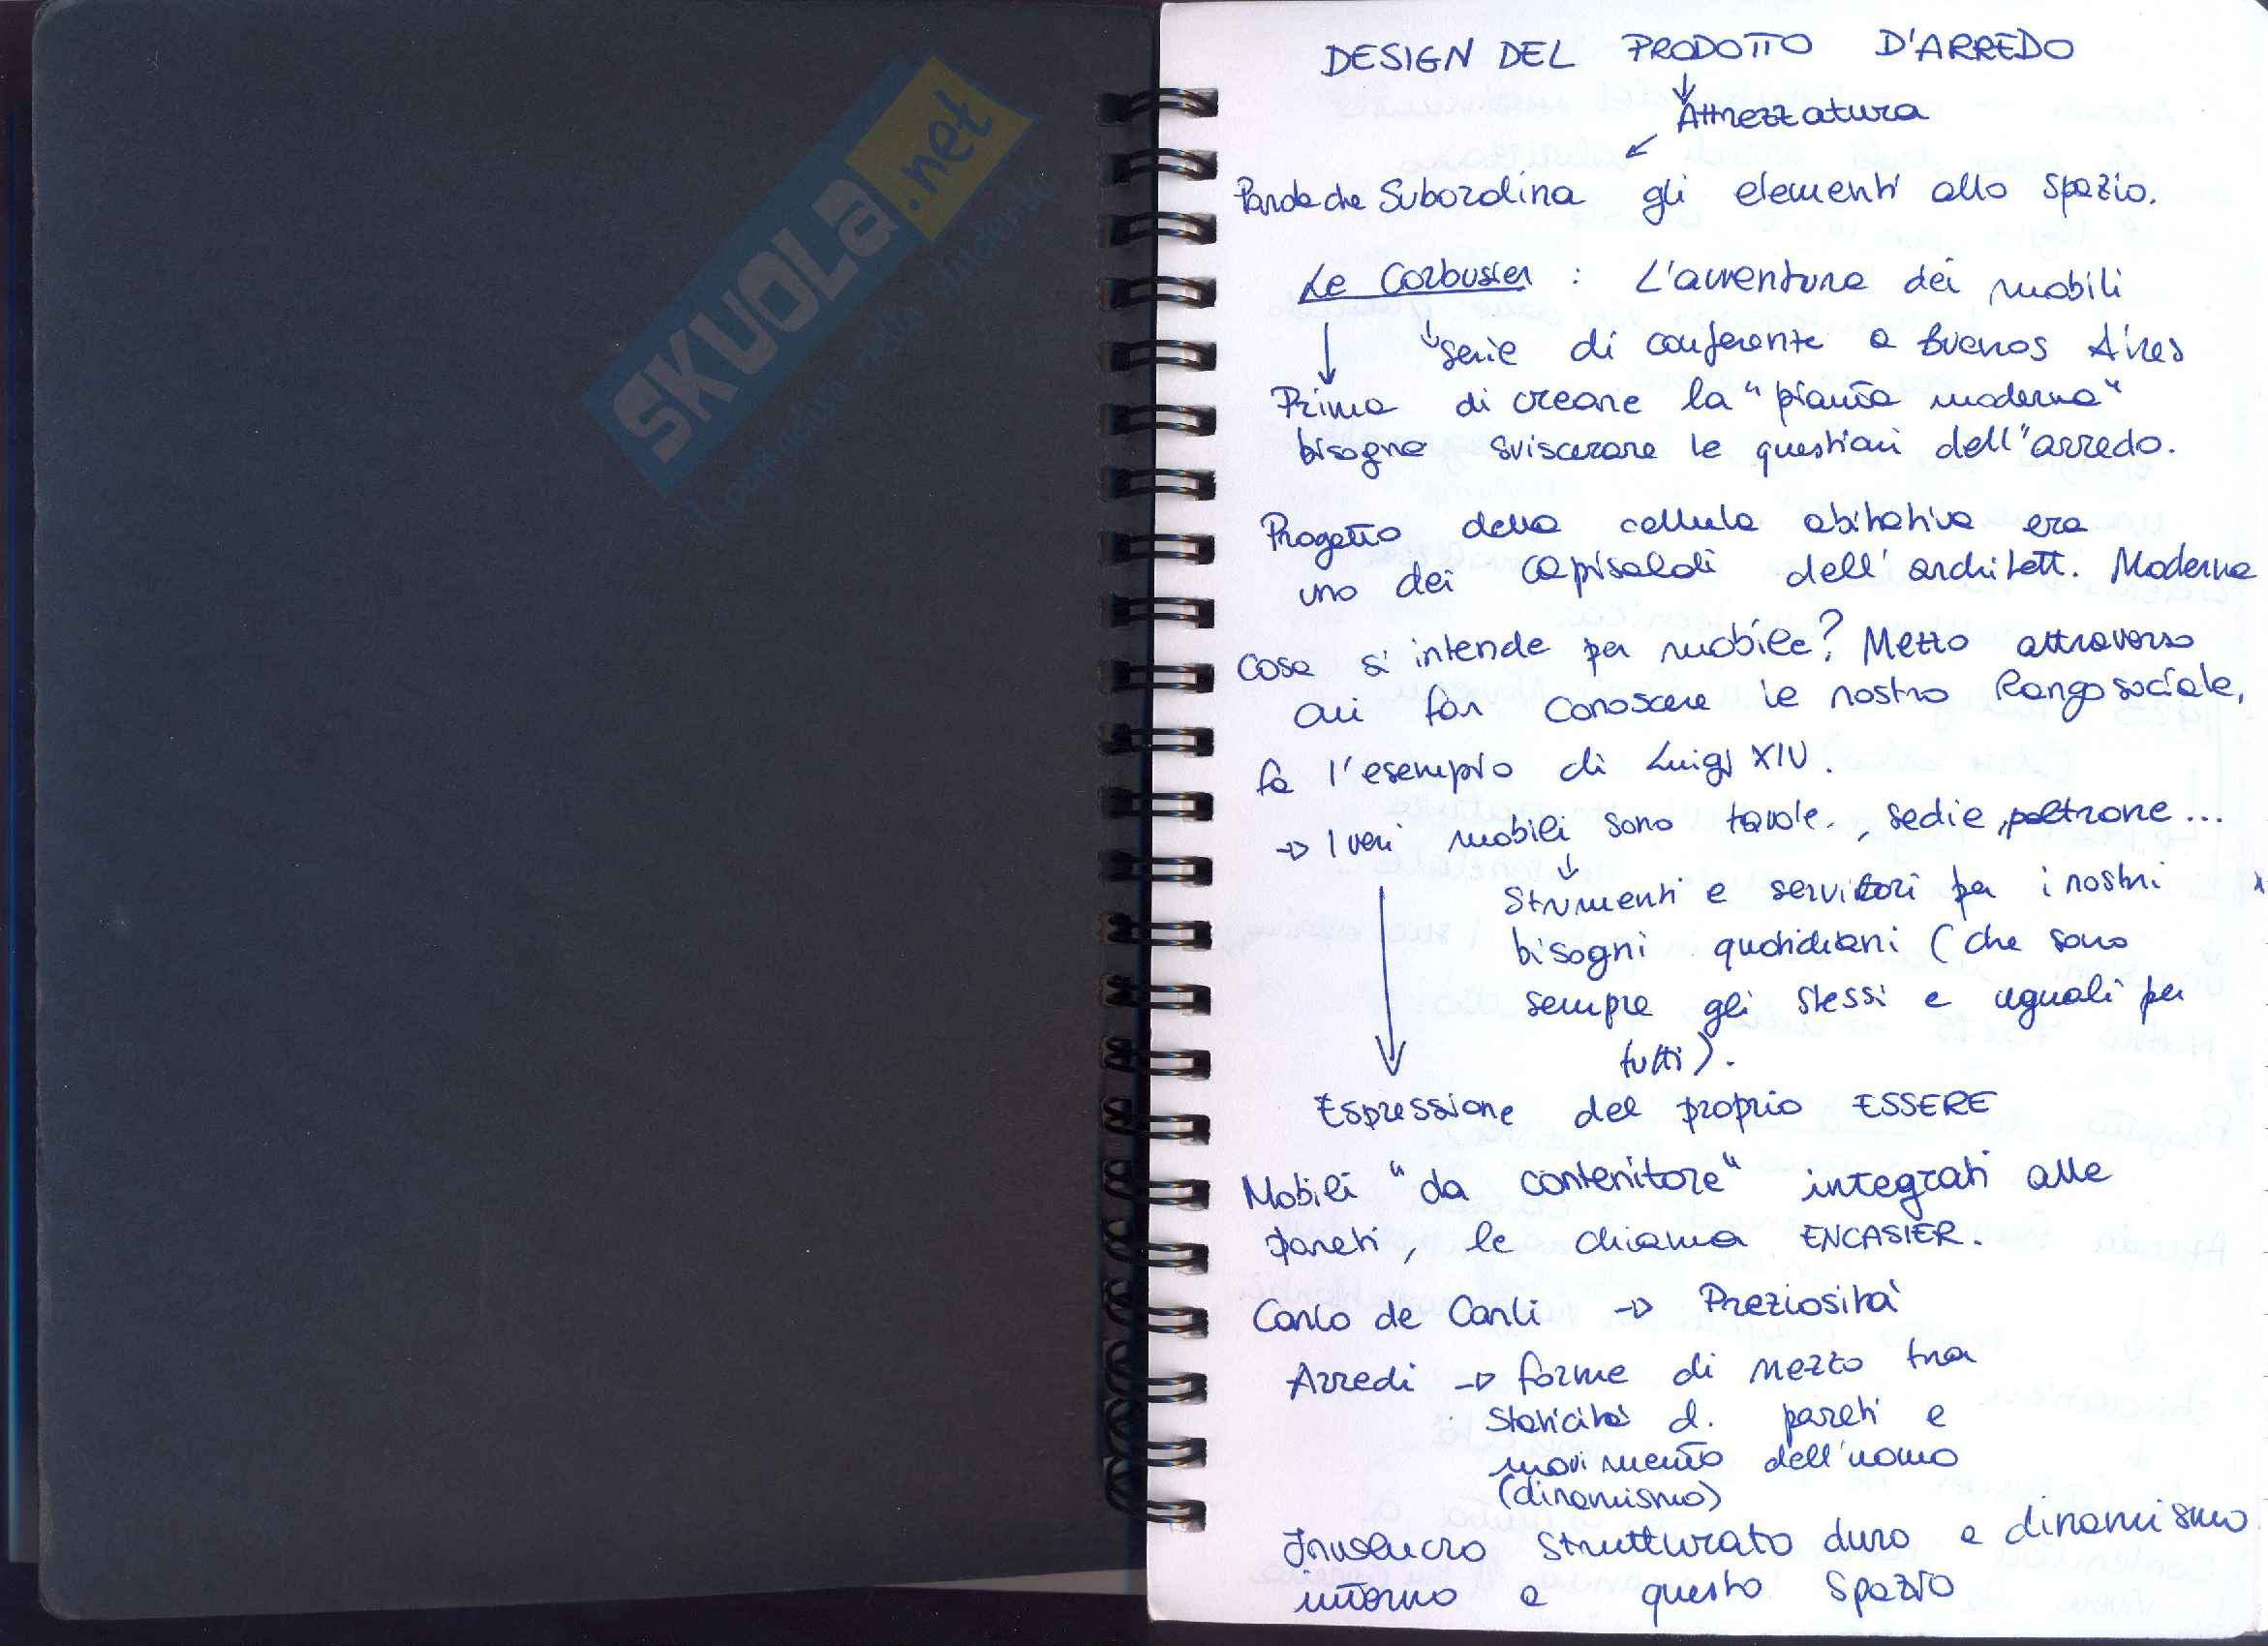 SKUOLA.net
il paradiso dello studente
DESIGN DEL PRODOTTO D'ARREDO
↓
Attrezzatura
↙
Parola che Subordina gli elementi allo spazio.
Le Corbusier : L'avventura dei mobili
↓ serie di conferenze a Buenos Aires
Prima di creare la "pianta moderna"
bisogna sviscerare le questioni dell'arredo.
Progetto della cellula abitativa era
uno dei capisaldi dell'architett. Moderna
Cosa si intende per mobile? Mezzo attraverso
cui far conoscere il nostro Rango sociale,
fa l'esempio di Luigi XIV.
→ I veri mobili sono tavole, sedie, poltrone...
↓
Strumenti e servitori per i nostri
bisogni quotidiani (che sono
sempre gli stessi e uguali per
tutti).
Espressione del proprio ESSERE
Mobili "da contenitore" integrati alle
pareti, le chiama ENCASIER.
Carlo de Carli → Preziosità
Arredi → forme di mezzo tra
staticità d. pareti e
movimento dell'uomo
(dinamismo)
Involucro strutturato duro e dinamismo
intorno a questo spazio